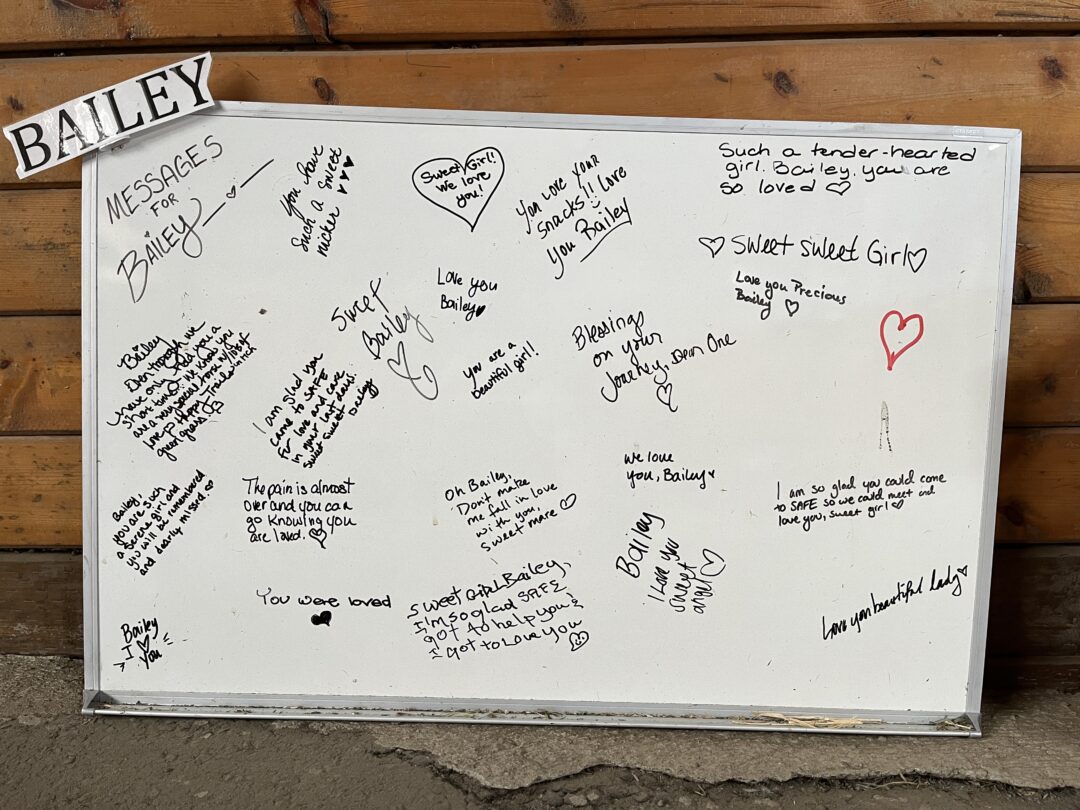 BAILEY
MESSAGES
FOR
BAILEY
You have
such a sweet
nicker
Sweet Girl!
we love
you!
You love your
snacks!! Love
you Bailey
Such a tender-hearted
girl. Bailey, you are
so loved
Sweet Sweet Girl
Love you Precious
Bailey
Love you
Bailey
Sweet
Bailey
you are a
beautiful girl!!
Blessings
on your
Journey, Dear One
Bailey
Even through we
have only had you a
short time. We know you
are a very special horse w/ lots of
love
green grass!
I am glad you
came to SAFE
for love and care
in your last days.
sweet sweet Bailey
Bailey,
you are such
a serene girl and
you will be remembered
and dearly missed.
The pain is almost
over and you can
go knowing you
are loved.
Oh Bailey,
Don't make
me fall in love
with you,
sweet mare
we love
you, Bailey
I am so glad you could come
to SAFE so we could meet and
love you, sweet girl
Bailey
I Love you
sweet
angel
Love you beautiful lady
You were loved
Sweet Girl Bailey,
I'm so glad SAFE
got to help you &
I got to love you
Bailey
I
You